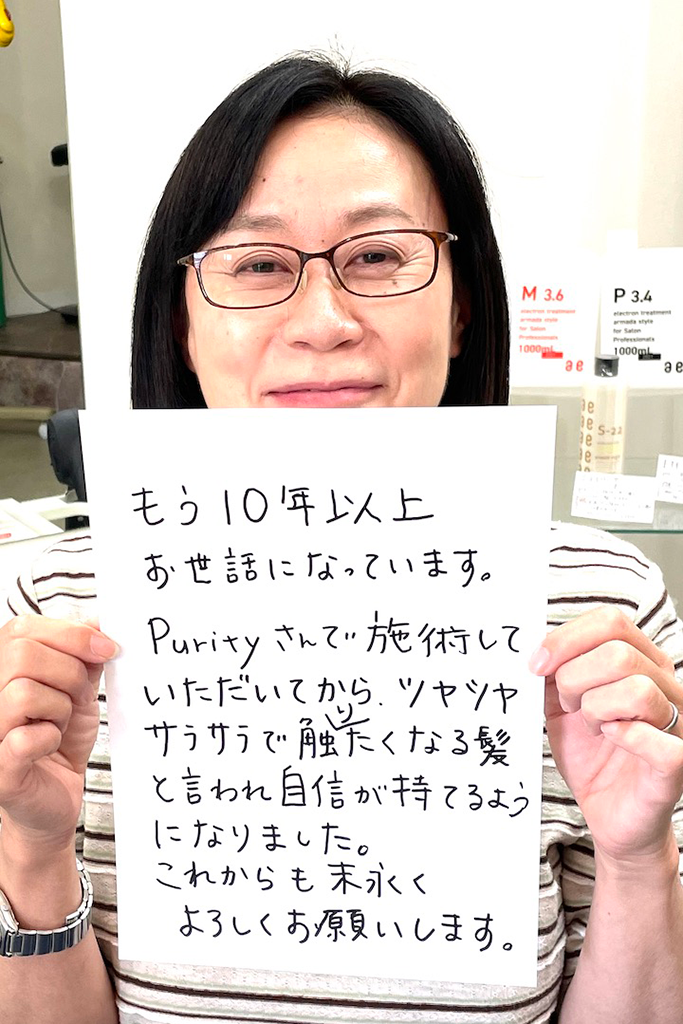 もう10年以上
お世話になっています。
Purityさんで施術して
いただいてから、ツヤツヤ
サラサラで触りたくなる髪
と言われ自信が持てるよう
になりました。
これからも末永く
よろしくお願いします。
M 3.6
electron treatment
armada style
for Salon
Professionals
1000mL
P 3.4
electron treatment
armada style
for Salon
Professionals
1000mL
S-22